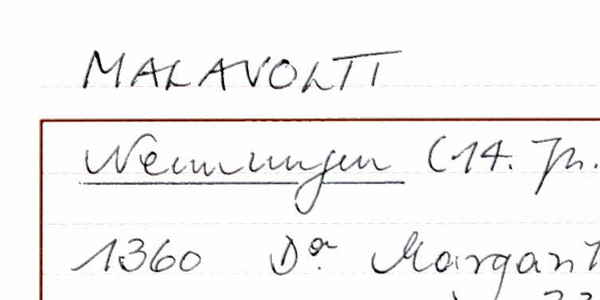 MALAVOLTI
Nennungen (14. Jh.
1360 Dª Margarit